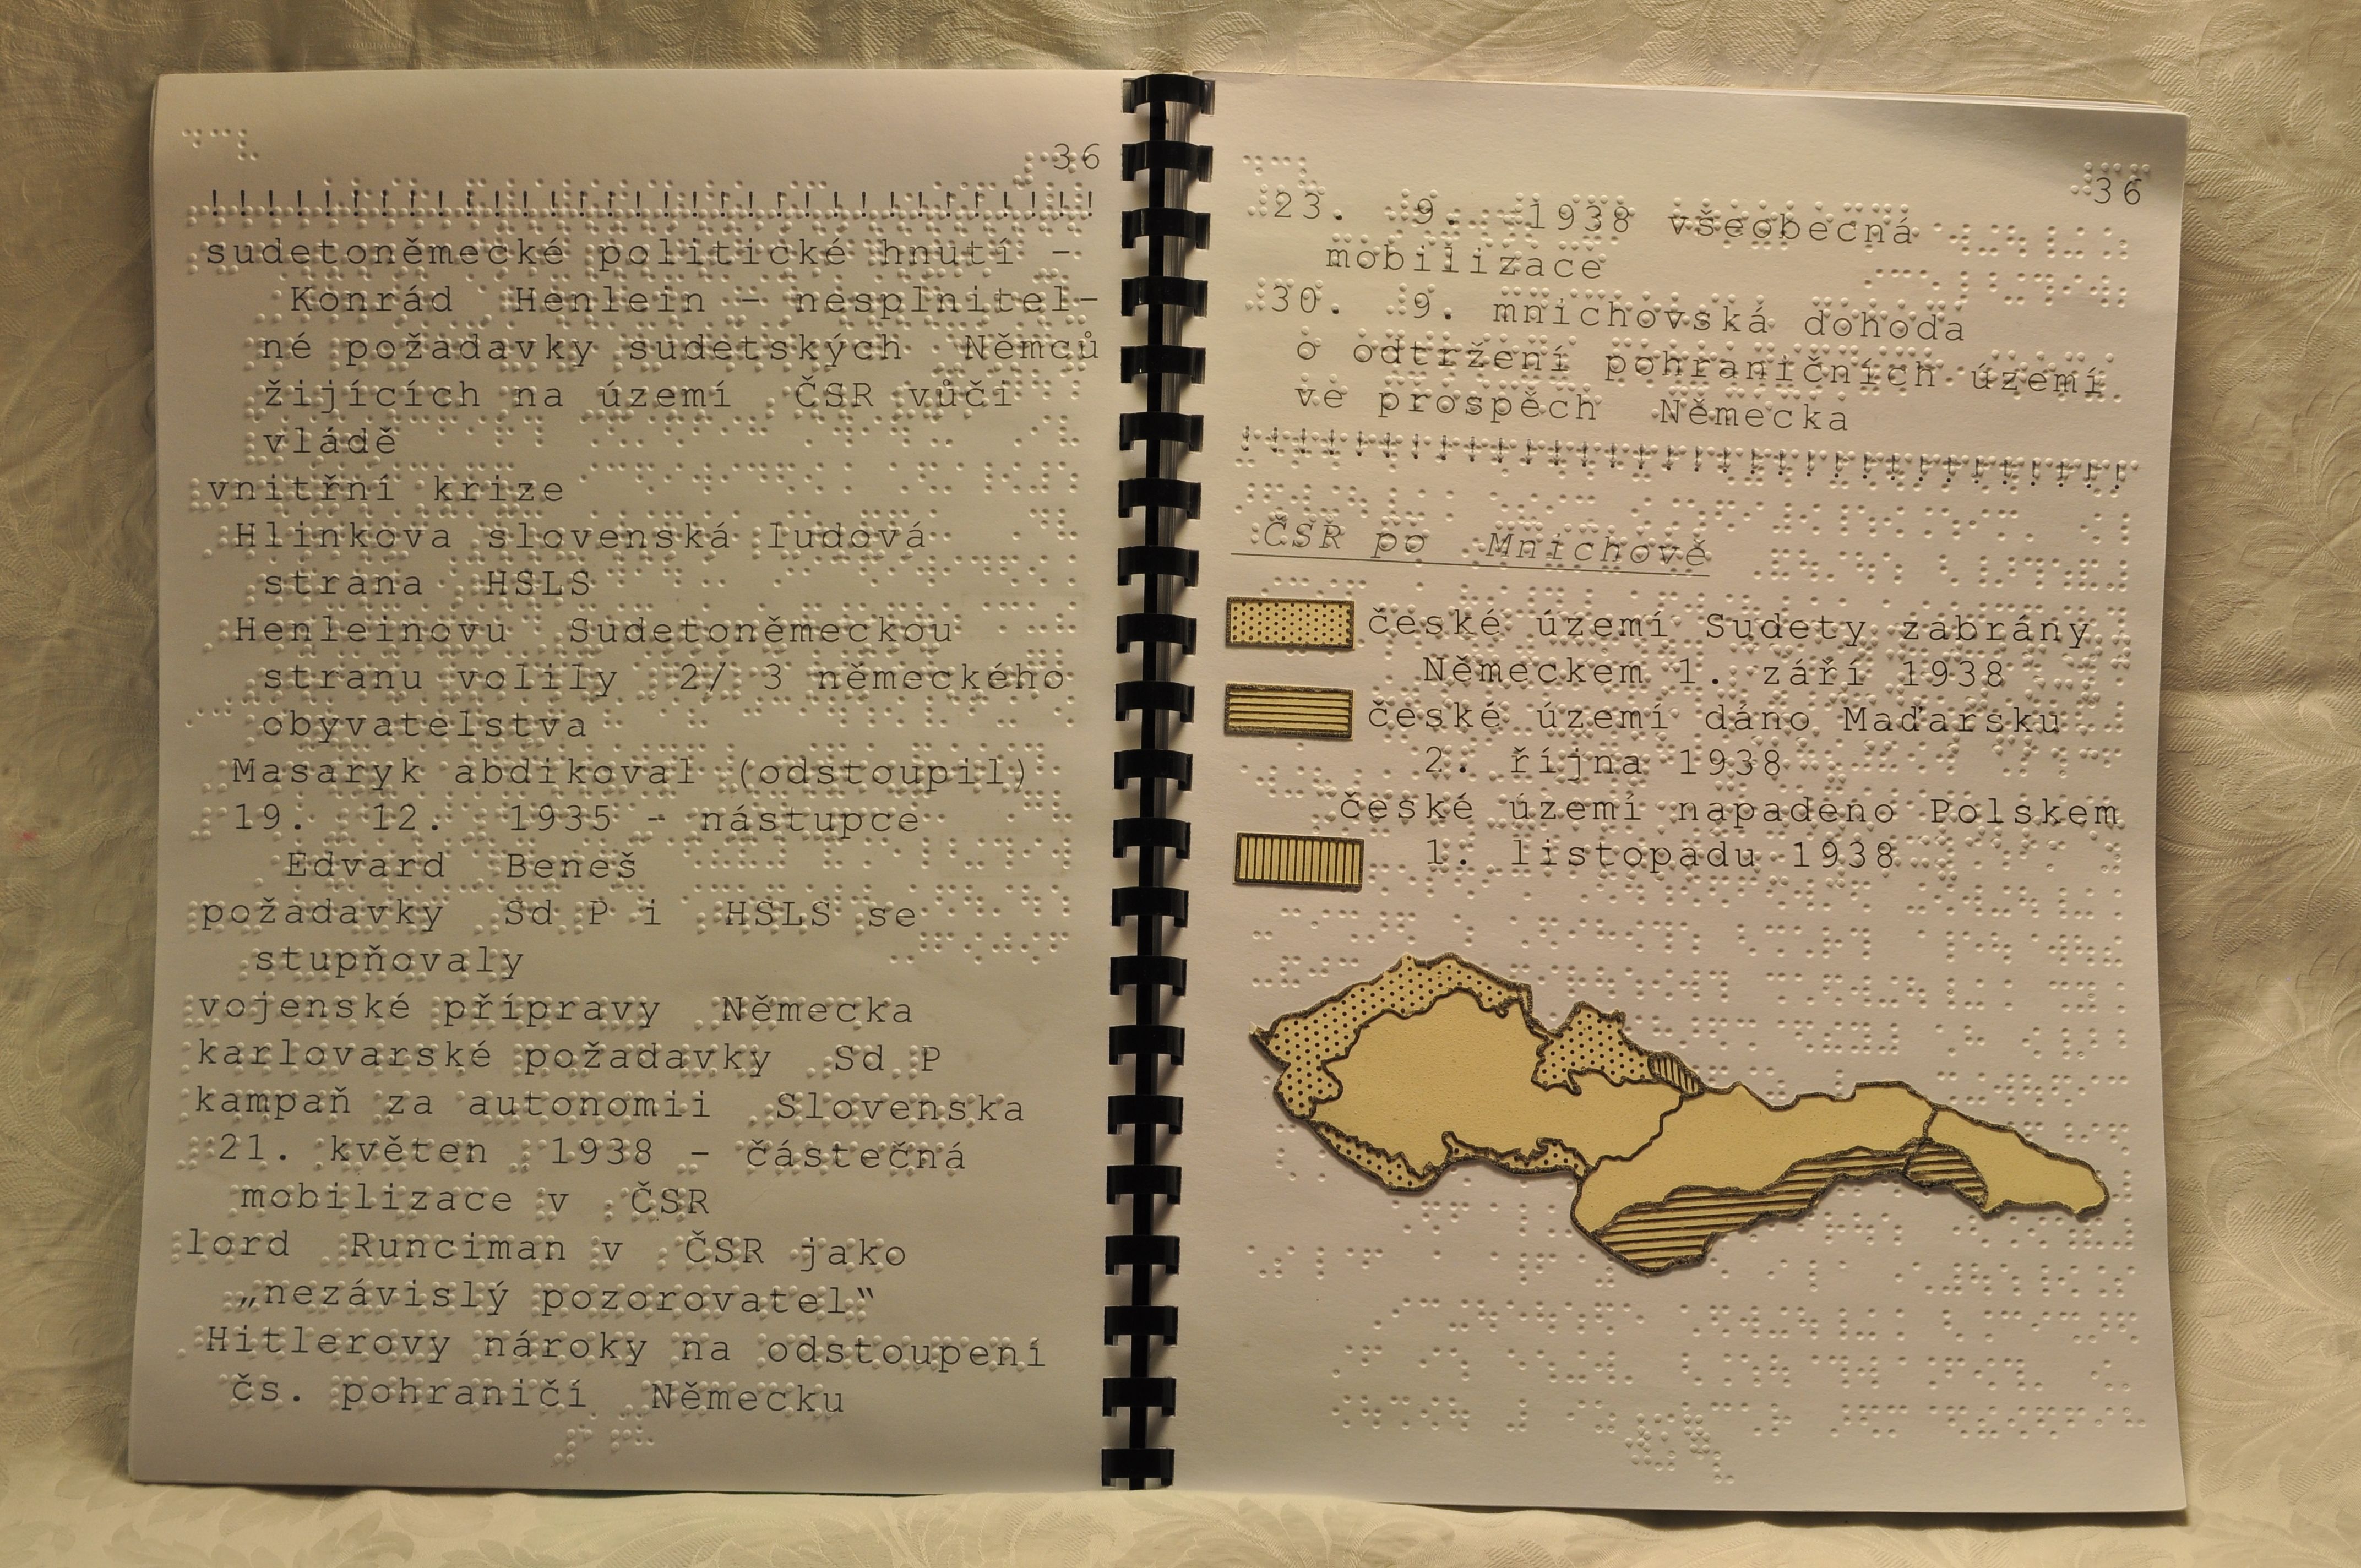 36
!!!!!!!!!!!!!!!!!!!!!!!!!!!!!!!!
sudetoněmecké politické hnutí -
Konrád Henlein - nesplnitel-
né požadavky sudetských Němců
žijících na území ČSR vůči
vládě
vnitřní krize
Hlinkova slovenská ludová
strana HSLS
Henleinovu Sudetoněmeckou
stranu volily 2/ 3 německého
obyvatelstva
Masaryk abdikoval (odstoupil)
19. 12. 1935 - nástupce
Edvard Beneš
požadavky Sd P i HSLS se
stupňovaly
vojenské přípravy Německa
karlovarské požadavky Sd P
kampaň za autonomii Slovenska
21. květen 1938 - částečná
mobilizace v ČSR
lord Runciman v ČSR jako
„nezávislý pozorovatel“
Hitlerovy nároky na odstoupení
čs. pohraničí Německu
36
23. 9. 1938 všeobecná
mobilizace
30. 9. mnichovská dohoda
o odtržení pohraničních území
ve prospěch Německa
!!!!!!!!!!!!!!!!!!!!!!!!!!!!!!!!
ČSR po Mnichově
české území Sudety zabrány
Německem 1. září 1938
české území dáno Maďarsku
2. října 1938
české území napadeno Polskem
1. listopadu 1938